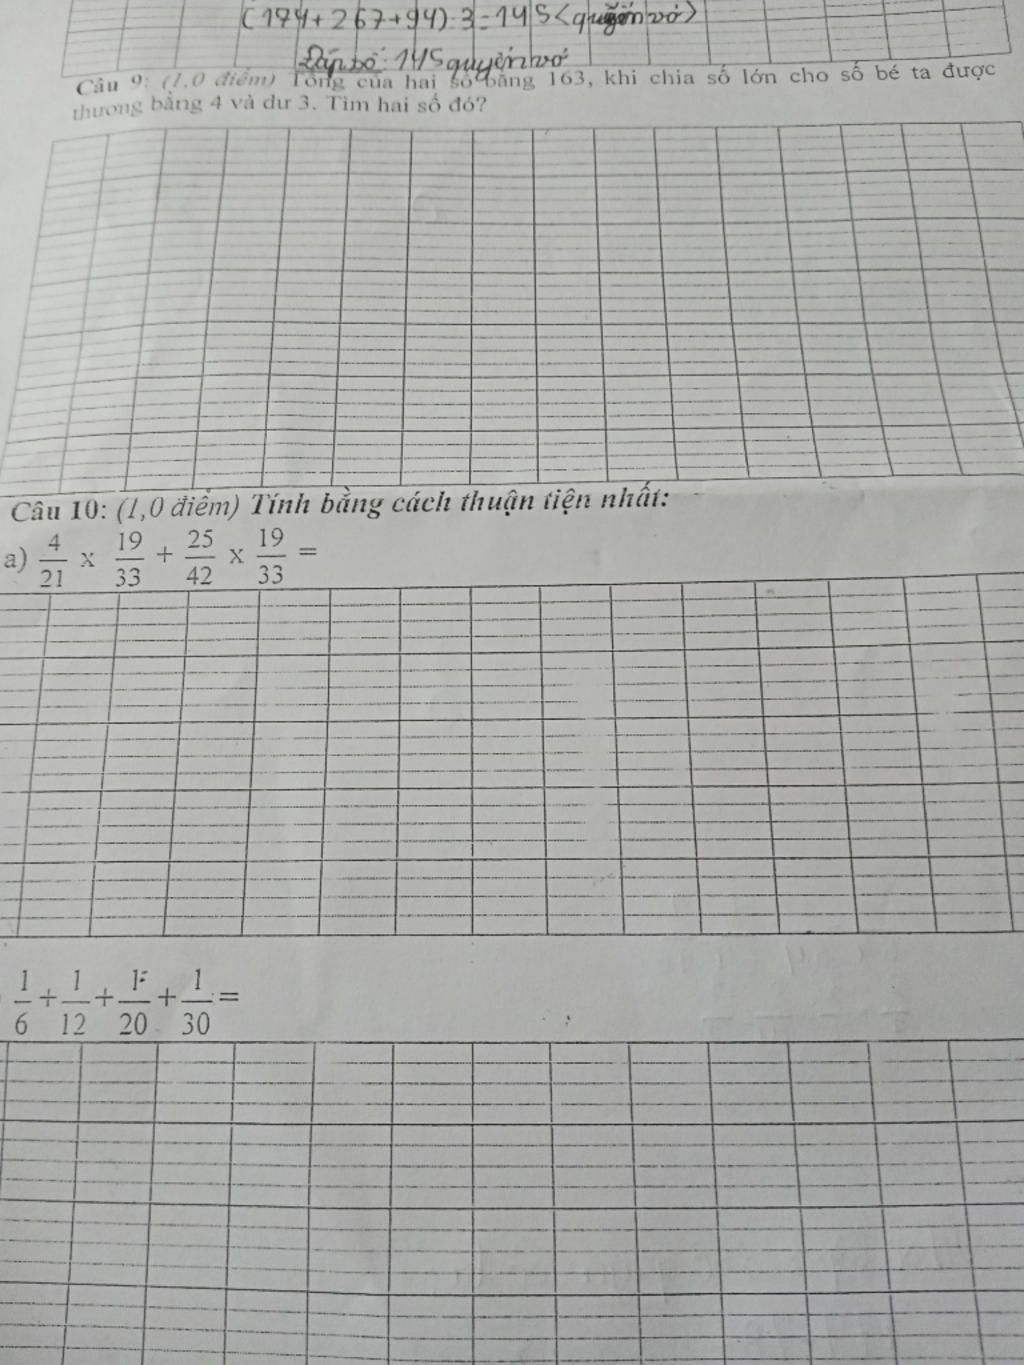 (174+267+94):3=145<quyển vở>
Đáp số: 145 quyển vở
Câu 9: (1,0 điểm) Tổng của hai số bằng 163, khi chia số lớn cho số bé ta được
thương bằng 4 và dư 3. Tìm hai số đó?
Câu 10: (1,0 điểm) Tính bằng cách thuận tiện nhất:
a) 4/21 x 19/33 + 25/42 x 19/33 =
1/6 + 1/12 + 1/20 + 1/30 =